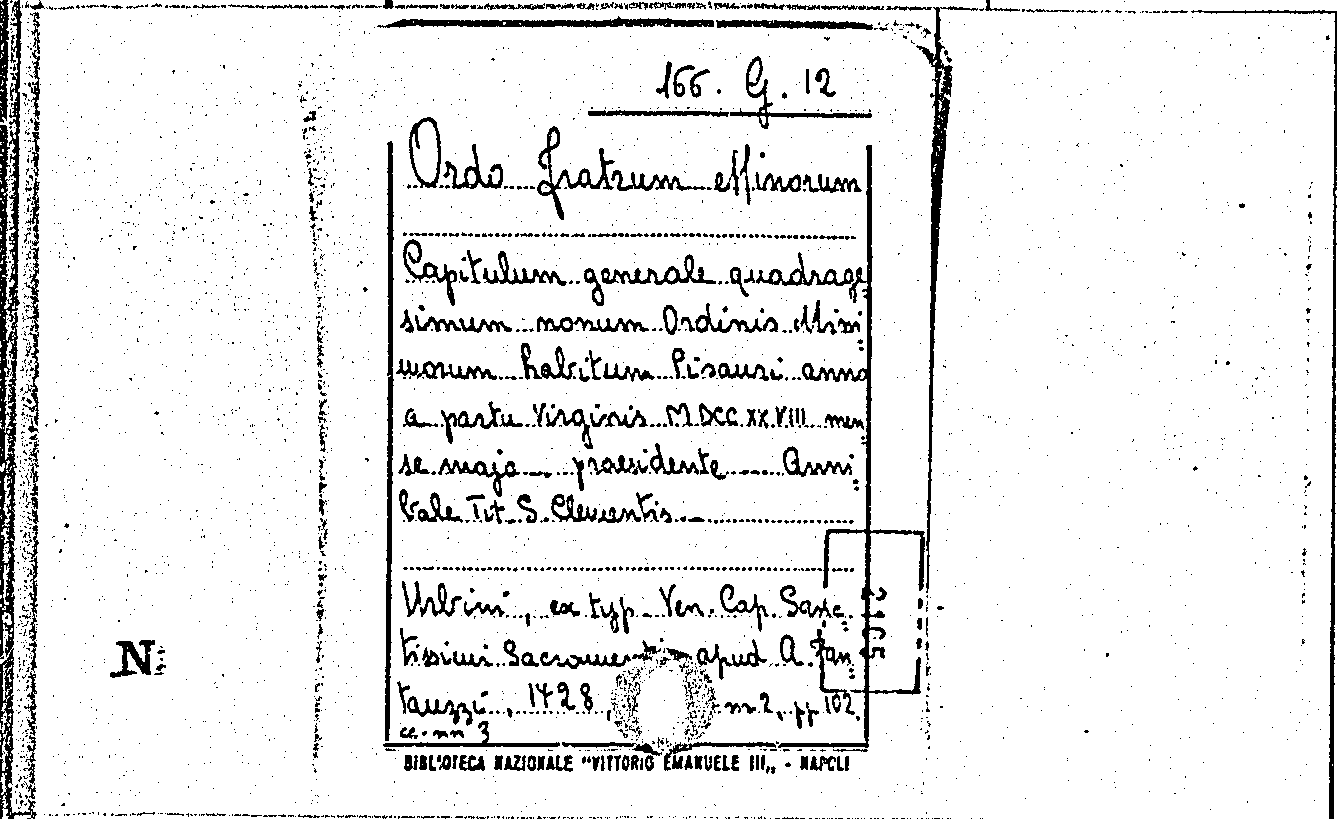 166. G. 12
Ordo Fratrum Minorum
Capitulum generale quadrage
simum nonum Ordinis Mini
morum habitum Pisauri anno
a partu Virginis MDCCXXVIII men
se majo... praesidente... Anni
bale Tit. S. Clementis...
Urbini, ex typ. Ven. Cap. Sanc
tissimi Sacramenti apud A. Fan
tauzzi, 1728, nn 2, pp 102,
cc. nn 3
BIBLIOTECA NAZIONALE "VITTORIO EMANUELE III„ - NAPOLI
N